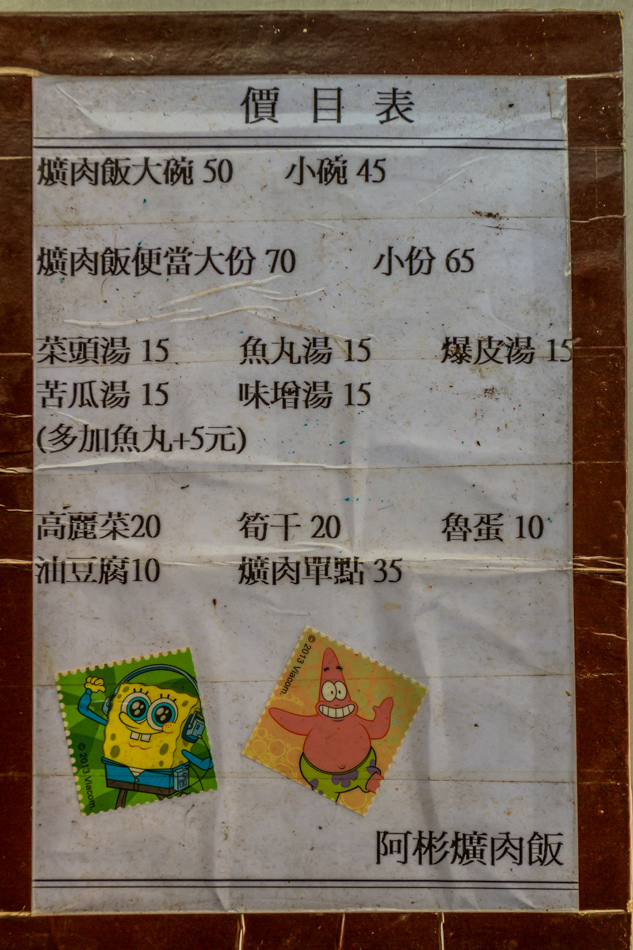 價目表
爌肉飯大碗 50 小碗 45
爌肉飯便當大份 70 小份 65
菜頭湯 15 魚丸湯 15 爆皮湯 15
苦瓜湯 15 味增湯 15
(多加魚丸+5元)
高麗菜20 筍干 20 魯蛋 10
油豆腐10 爌肉單點 35
© 2013 Viacom.
© 2013 Viacom.
阿彬爌肉飯